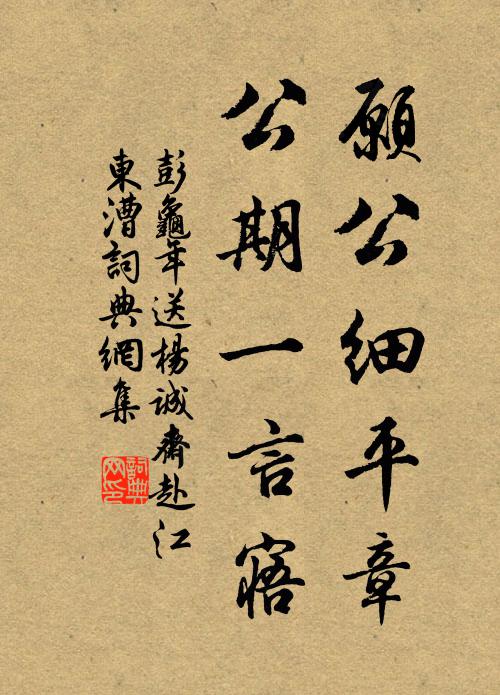 願公細平章
公期一言寤
彭龜年送楊誠齋赴江
東漕詞典網集
詞典
网印